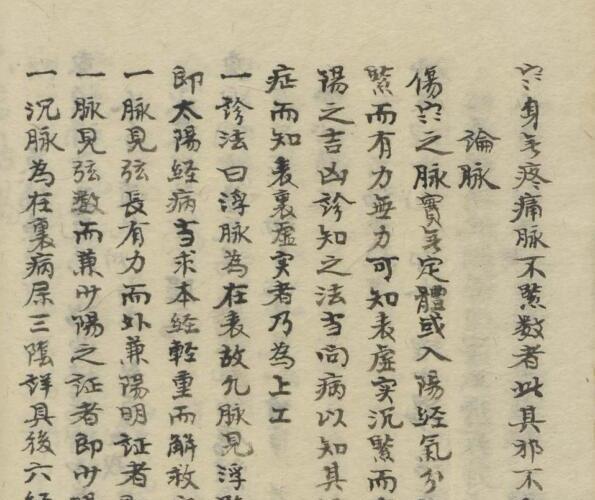 身無疼痛脉不緊数者此真邪不
論脉
傷寒之脉實無定體或入陽経氣分
緊而有力無力可知表虚实沉緊而
陽之吉凶診知之法当问病以知其
症而知表裏虚实者乃為上工
一診法曰浮脉為在表故凢脉見浮
即太陽経病当求本経軽重而解救
一脉見弦長有力而外兼陽明証者
一脉見弦数而兼少陽之証者即少陽
一沉脉為在裏病属三陰詳具後六経